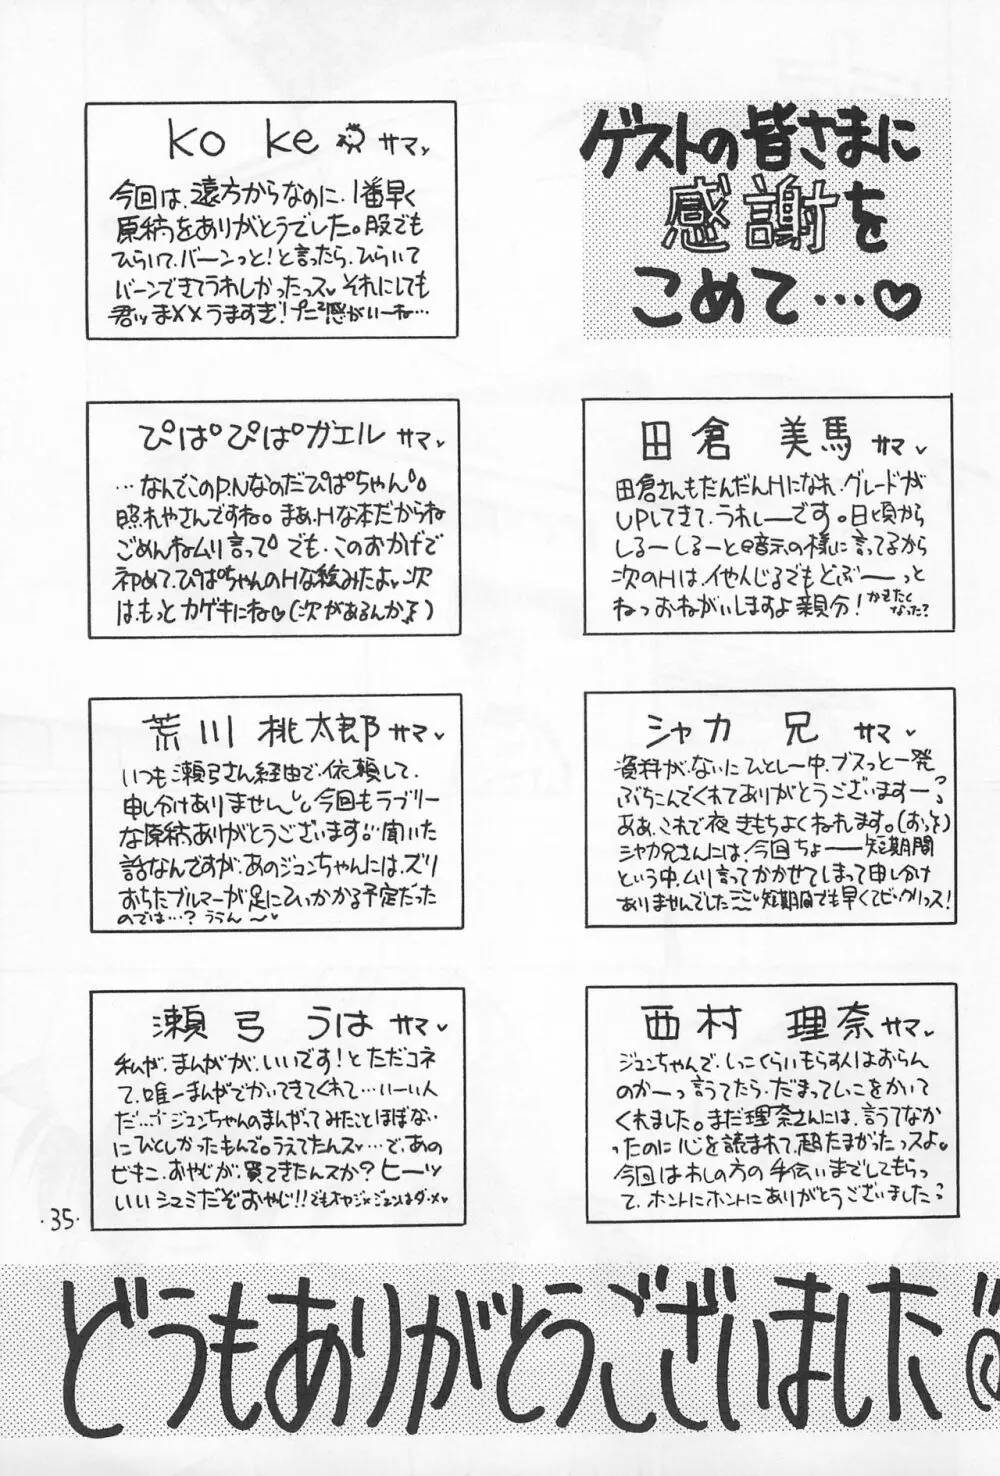 ゲストの皆さまに
感謝を
こめて…♡
ko ke サマ
今回は、遠方からなのに、1番早く
原稿をありがとうでした。服でも
ひらいて、バーンっと!と言ったら、ひらいて
バーンできてうれしかったっス それにしても
うますぎ!プニプニ感がいーね…
田倉 美馬 サマ
田倉さんもだんだんHになれ、グレードが
UPしてきて、うれしーです。日頃から
しるーしるーと暗示の様に言ってるから
次のHは、
ねっおねがいしますよ親分!かせたく
なった?
ぴぱぴぱガエル サマ
…なんでこのP.Nなのだぴぱちゃん
照れやさんですね。まあ、Hな本だからね
ごめんねムリ言って でも、このおかげで
初めて、ぴぱちゃんのHな絵みたよ 次
は、もっとカゲキにね♡(次があるんか)
シャカ 兄 サマ
資料が、ないにひとしー中、ブスっと一発
ぶちこんでくれてありがとうございますー
ああ、これで夜きもちよくねれます。(おっと)
シャカ兄さんには、今回ちょーー短期間
という中、ムリ言ってかかせてしまって申し分け
ありませんでした 短期間でも早くてビックリっス!
荒川 桃太郎 サマ
いつも瀬弓さん経由で、依頼して、
申し分けありません 今回もラブリー
な原稿ありがとうございます 聞いた
話なんですが、あのジュンちゃんには、ズリ
おちたブルマーが足にひっかかる予定だった
のでは…?ううん〜
西村 理奈 サマ
ジュンちゃんで、しっこくらいもらす人はおらん
のかーっ言うてたら、だまってしっこをかいて
くれました。まだ理奈さんには、言うてなか
ったのに心を読まれて、超たまがったっスよ。
今回は私の方の手伝いまでしてもらっ
て、ホントにホントにありがとうございました
瀬弓 うは サマ
私が、まんがが、いいです!とただコネ
て、唯一まんがでかいてきてくれて…いーい人
だ… ジュンちゃんのまんがってみたことほぼない
にひとしかったもんで。うえてたんスッ…で、あの
ビキニ、おやじが、買てきたんスか?ヒーッ
いいシュミだぞおやじ!!でもオヤジ×ジュンはダ・メ
・35・
どうもありがとうございました